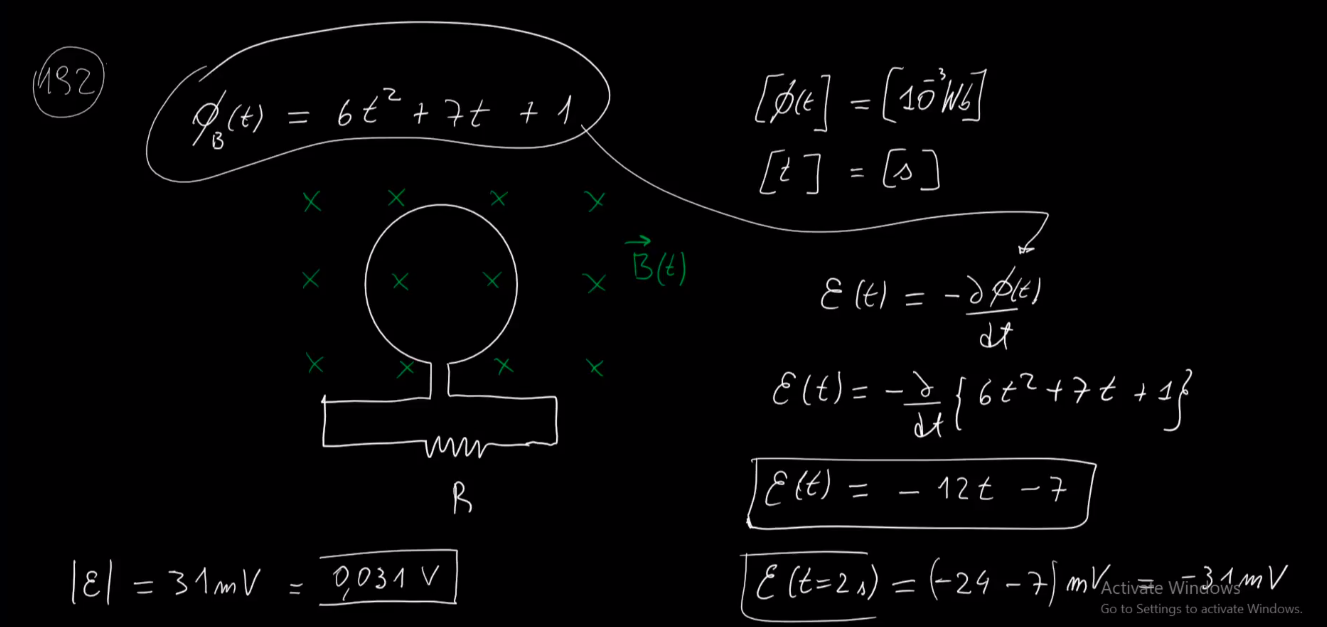 192
ϕ_B(t) = 6t² + 7t + 1
[ϕ(t] = [10⁻³Wb]
[t] = [s]
B⃗(t)
ε(t) = -∂ϕ(t)/dt
ε(t) = -∂/dt {6t² + 7t + 1}
ε(t) = - 12t - 7
R
|ε| = 31mV = 0,031 V
ε(t=2s) = (-24 - 7) mV = -31mV
Activate Windows
Go to Settings to activate Windows.